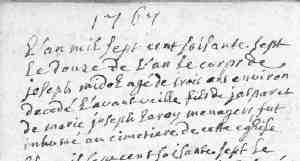 1767
L'an mil sept cent soisante sept
le douze de L'an le corps de
joseph midot agé de trois ans environ
decedé l'avant veille fils de jaspart
de marie joseph Leroy menagers fut
inhumé au cimetiere de cette eglise
mil sept cent soisante sept le